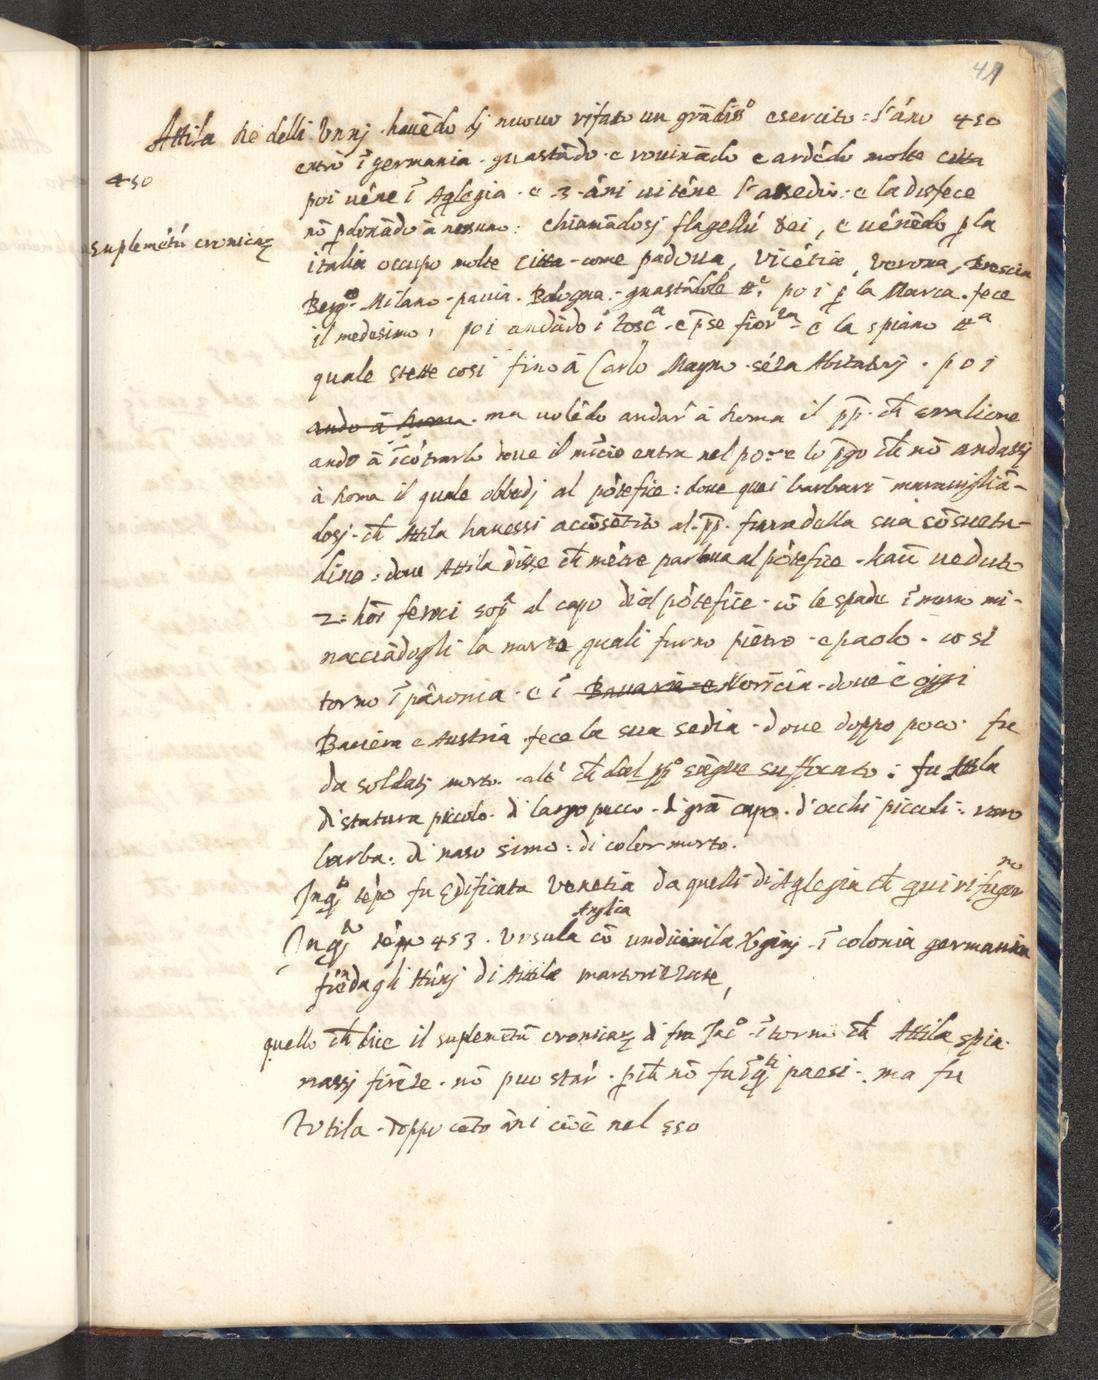 41
Attila Re delli Unnj havēdo dj nuovo rifato un grādisº esercito : l'āno 450
entrò ī germania · guastādo · e rovinādo e ardēdo molte citta
450
poi vēne ī Aglegia · e 3 · āni vi tēne l'assedio : e la disfece
nō pdonādo à nesuno : chiamādosj flagellū dei , e vēnēdo p la
suplemētū cronicaȝ
italia occupo molte citta - come padova , vicētia , verona , Brescia
Bergº - Milano - pavia . Bologna : guastādole ttᵉ , poi p la Marca . fece
il medesimo , poi andādo ī Toscª - e pse fiorᶻᵃ - e la spiano ttª
quale stette cosi fino à Carlo Magno · sēza Abitatorj . poi
ando à Roma · ma volēdo andar à Roma il pp · ch̄ era lione
ando à īcōtrarlo dove il mīcio entra nel po e lo pgo ch̄ nō andassj
à Roma il quale obbedj al pōtefice : dove quei barbari maravigliā-
dosj - ch̄ Attila havessi accōsētito al · pp · fuora della sua cōsuetu-
dine : dove Attila disse ch̄ mētre parlava al pōtefice - havē veduto
2 : hoī feroci sopª al capo del pōtefice - cō le spade ī mano mi-
nacciādogli la morte quali furno pietro - e paolo - cosi
torno ī pānonia · e ī Bavaria e Noricia - dove è oggi
Baviera e Austria fece la sua sedia - dove doppo poco · fu
da soldatj morto · altⁱ ch̄ dal ppº sāgue suffocato : fu Attila
di statura piccolo · di largo petto - di grā capo . d'occhi piccoli : raro
barba : di naso simo : di color morto .
In qᵗᵒ tēpo fu Edificata venetia da quelli di Aglegia ch̄ qui rifugor
no
Anglia
In qᵗᵒ tēpo 453 . Ursula cō undicimila Vginj - ī colonia germania
furno dagli Hūnj di Attila martorizzate ,
quello ch̄ dice il suplemētū cronicaȝ di fra Jacº - ītorno ch̄ Attila spia-
nassj firēze · nō puo star · pch̄ nō fu ī qᵗⁱ paesi - ma fu
Totila · doppo cēto āni cioè nel 550